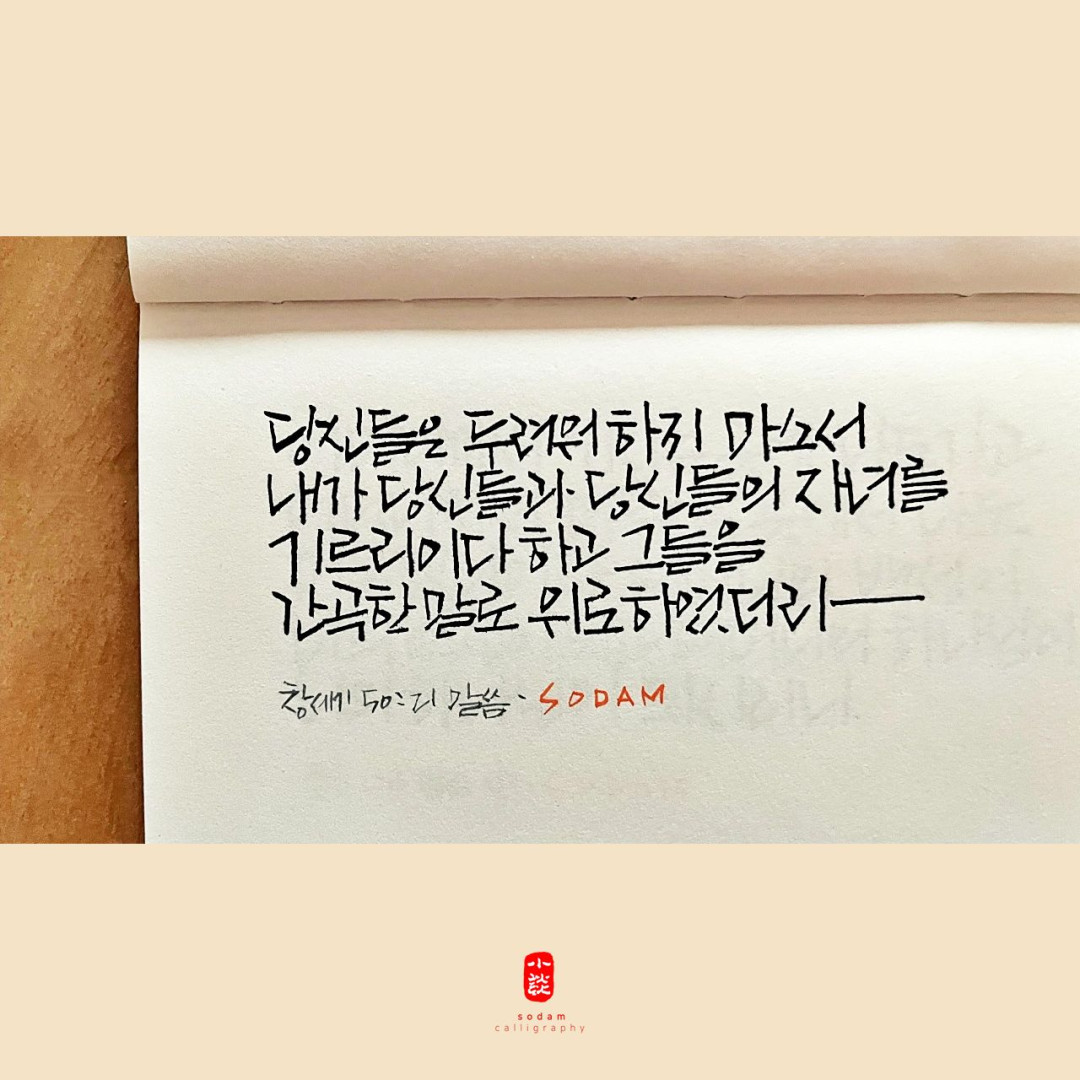 당신들은 두려워 하지 마소서
내가 당신들과 당신들의 자녀를
기르리이다 하고 그들을
간곡한 말로 위로하였더라
창세기 50:21 말씀. SODAM
小談
sodam
calligraphy